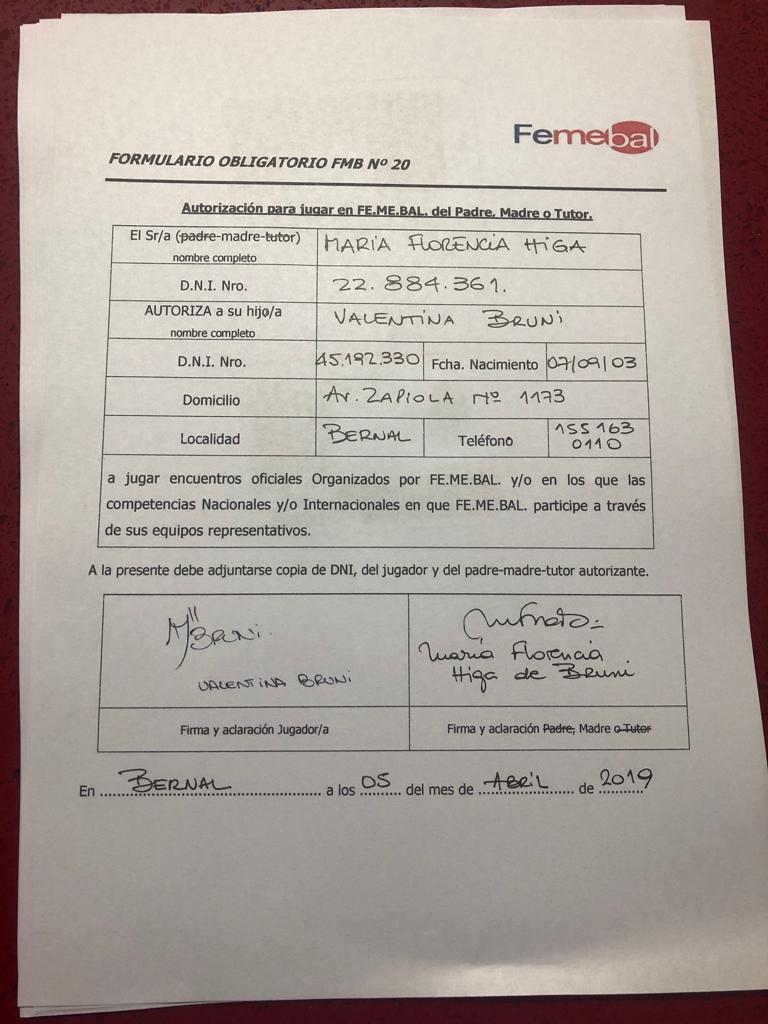 Femebal
FORMULARIO OBLIGATORIO FMB Nº 20
Autorización para jugar en FE.ME.BAL. del Padre, Madre o Tutor.
El Sr/a (padre-madre-tutor) MARIA FLORENCIA HIGA
nombre completo
D.N.I. Nro. 22.884.361.
AUTORIZA a su hijo/a VALENTINA BRUNI
nombre completo
D.N.I. Nro. 45.192.330 Fcha. Nacimiento 07/09/03
Domicilio Av. ZAPIOLA Nº 1173
Localidad BERNAL Teléfono 155 163
0110
a jugar encuentros oficiales Organizados por FE.ME.BAL. y/o en los que las
competencias Nacionales y/o Internacionales en que FE.ME.BAL. participe a través
de sus equipos representativos.
A la presente debe adjuntarse copia de DNI, del jugador y del padre-madre-tutor autorizante.
BRUNI.
VALENTINA BRUNI
María Florencia
Higa de Bruni
Firma y aclaración Jugador/a
Firma y aclaración Padre, Madre o Tutor
En BERNAL a los 05 del mes de ABRIL de 2019